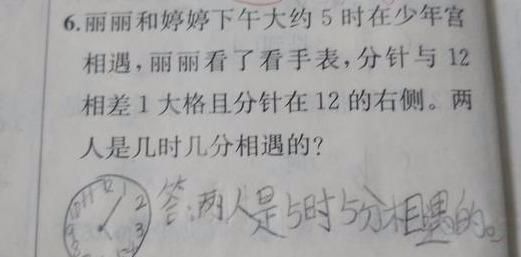 6.丽丽和婷婷下午大约5时在少年宫
相遇,丽丽看了看手表,分针与12
相差1大格且分针在12的右侧。两
人是几时几分相遇的?
答:两人是5时5分相遇的。
11 12 1
10 2
9 3
8 4